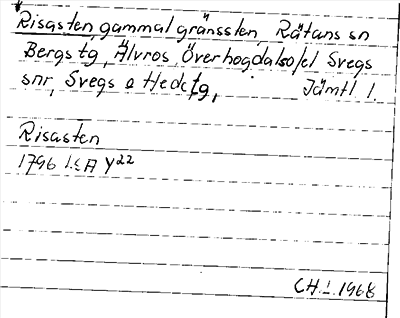 Risasten, gammal gränssten, Rätans sn
Bergs tg, Älvros, Överhogdalso/el Svegs
snr, Svegs o Hede tg, Jämtl l.
Risasten
1796 LSA Y22
CH. 1968